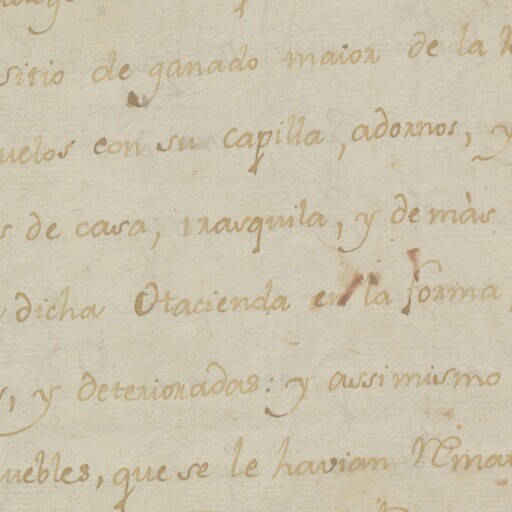 sitio de ganado maior de la
uelos con su capilla, adornos, y
s de casa, trasquila, y demàs
dicha Hacienda en la forma
s, y deterioradas: y assimismo
uebles, que se le havian